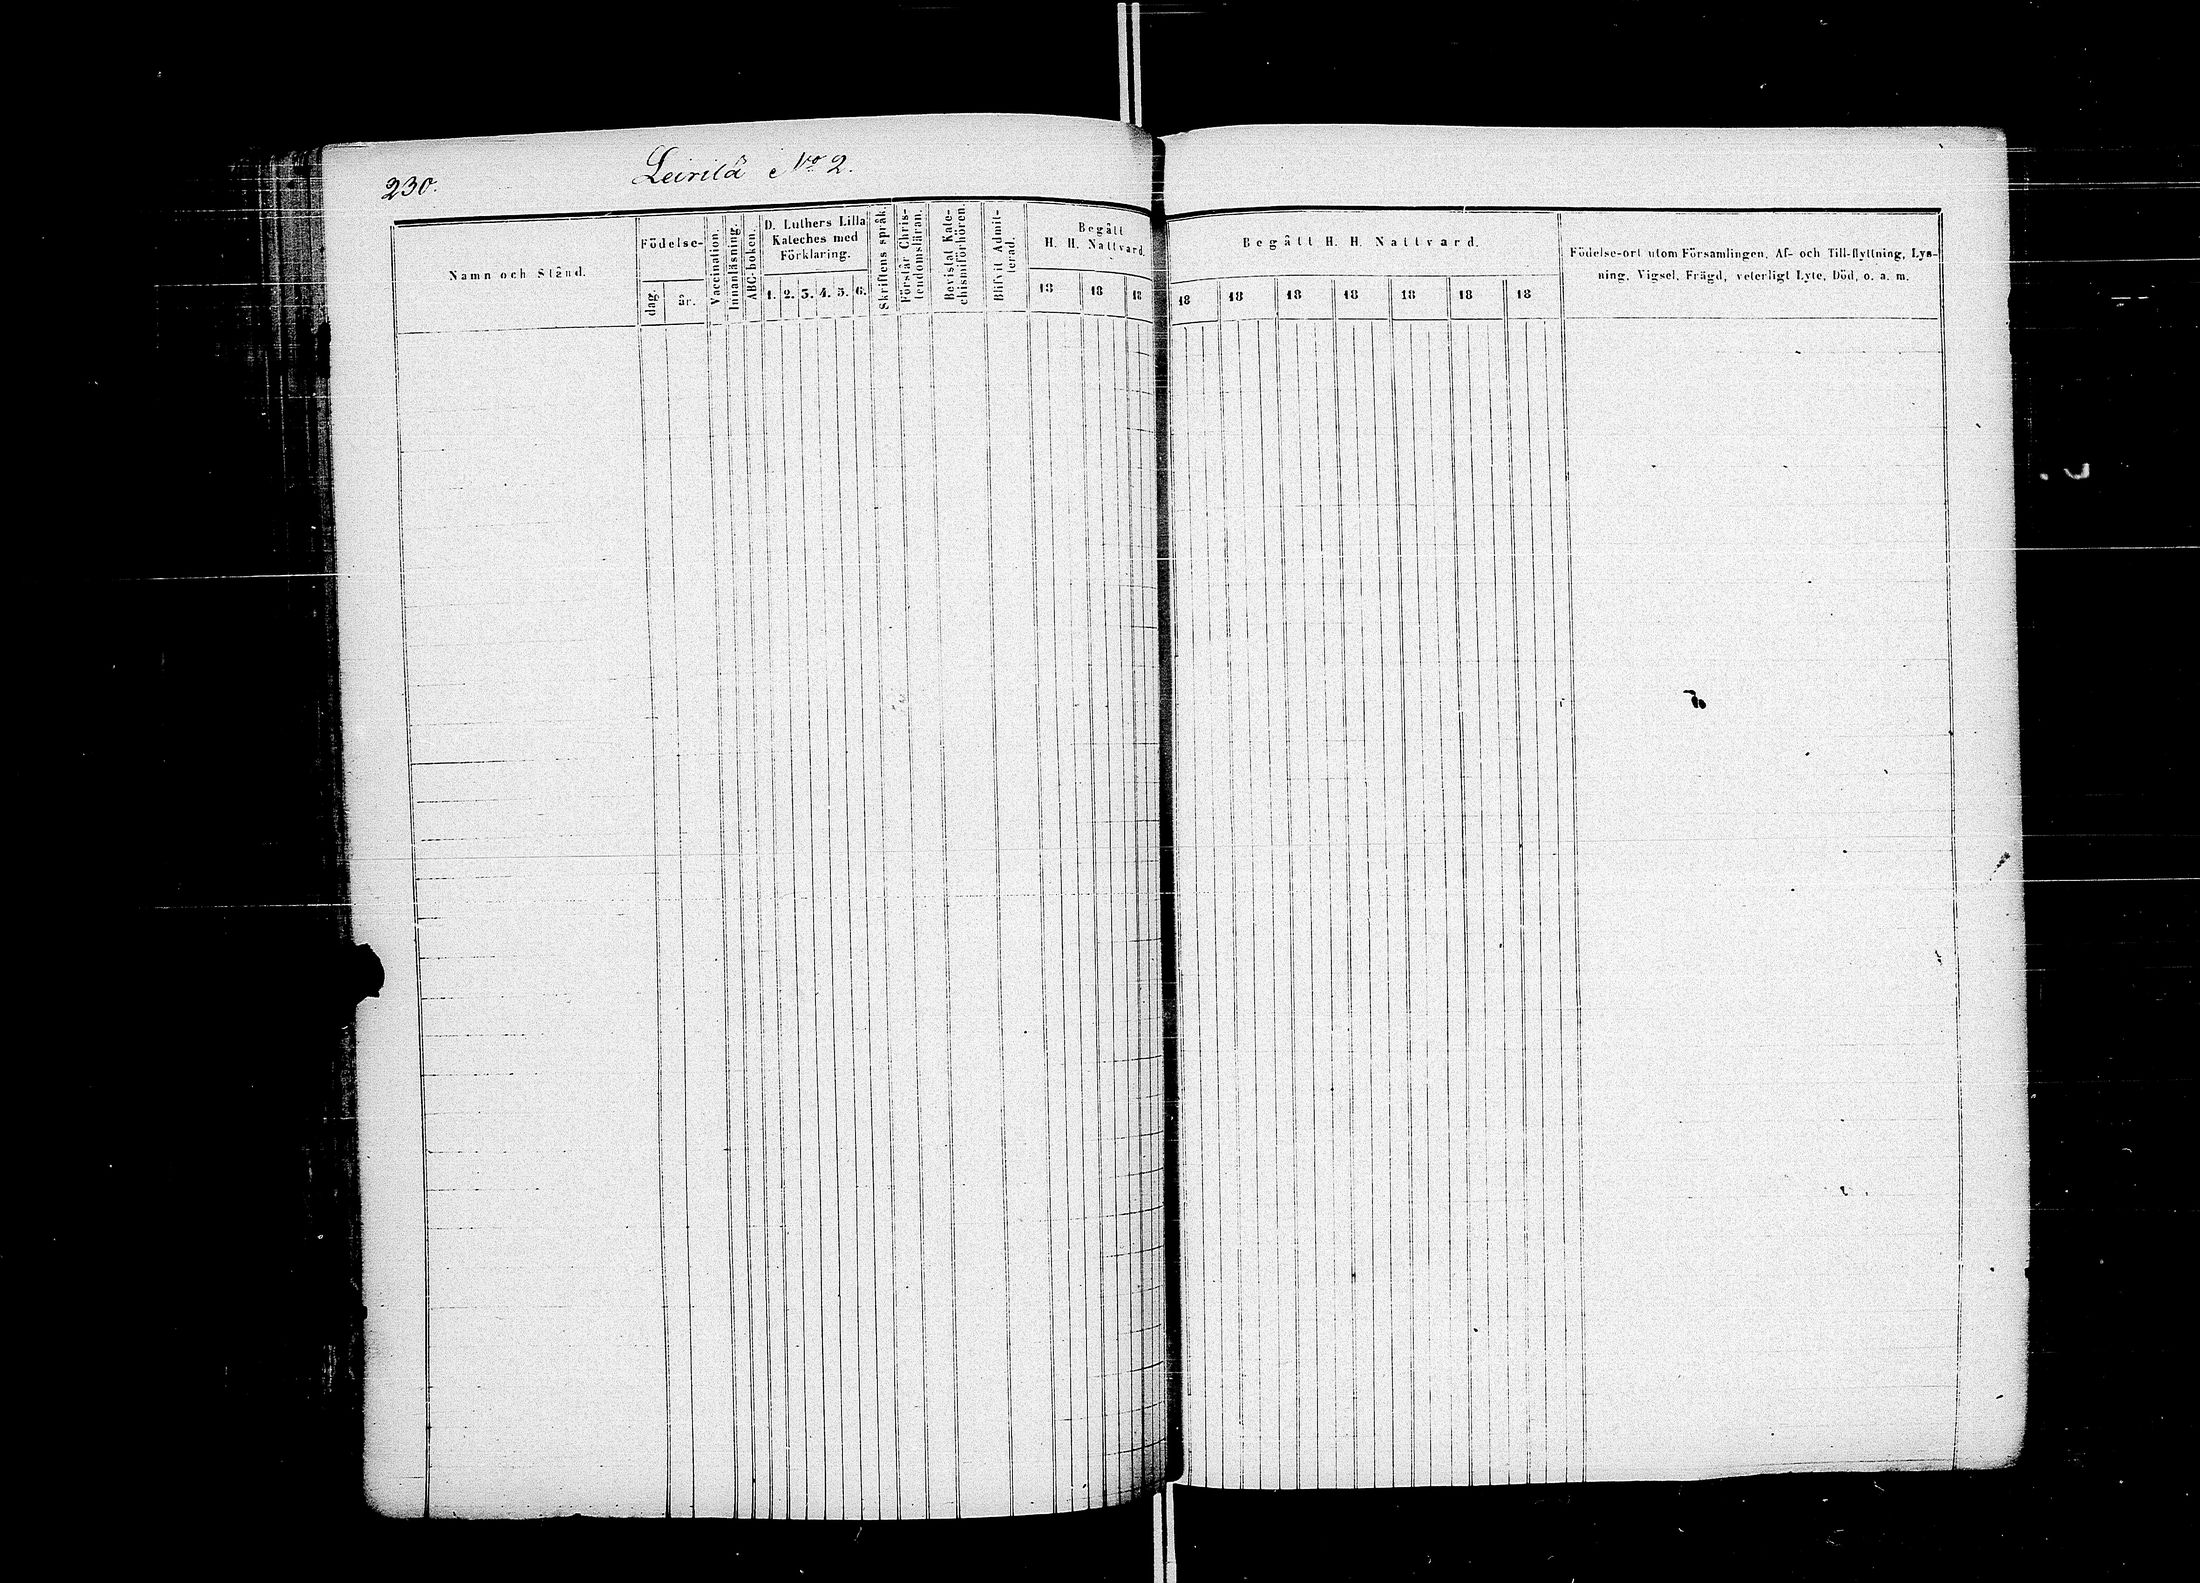 230.
Leirilä No 2.
Namn och Stånd.
Födelse-
dag.
år.
Vaccination.
Innanläsning.
ABC-boken.
D. Luthers Lilla
Kateches med
Förklaring.
1. 2. 3. 4. 5. 6.
Skriftens språk.
Förstår Chris-
tendomsläran.
Bevistat Kate-
chismiförhören.
Blifvit Admit-
terad.
Begått
H. H. Nattvard.
18 18 18
Begått H. H. Nattvard.
18 18 18 18 18 18 18
Födelse-ort utom Församlingen, Af- och Till-flyttning, Lys-
ning, Vigsel, Frägd, veterligt Lyte, Död, o. a. m.